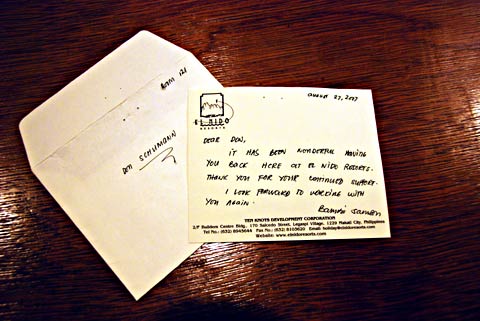 ROOM 121
DON SCHUMANN
EL NIDO
RESORTS
AUGUST 27, 2007
DEAR DON,
IT HAS BEEN WONDERFUL HAVING
YOU BACK HERE at EL NIDO RESORTS.
THANK YOU FOR YOUR CONTINUED SUPPORT.
I LOOK FORWARD TO WORKING WITH
YOU AGAIN.
TEN KNOTS DEVELOPMENT CORPORATION
2/F Builders Centre Bldg., 170 Salcedo Street, Legaspi Village, 1229 Makati City, Philippines
Tel No.: (632) 8945644 Fax No.: (632) 8103620 Email: holiday@elnidoresorts.com
Website: www.elnidoresorts.com